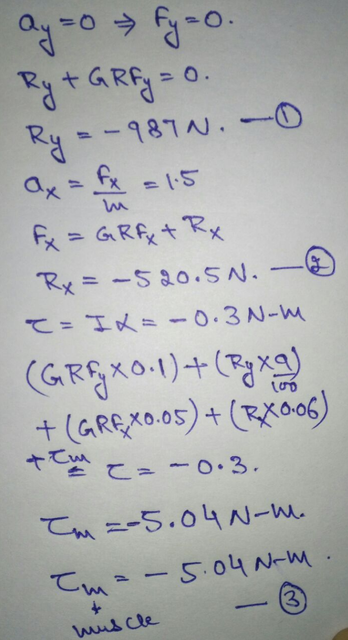 ay = 0 ⇒ Fy = 0.
Ry + GRFy = 0.
Ry = -987 N. — ①
ax = Fx/m = 1.5
Fx = GRFx + Rx
Rx = -520.5 N. — ②
τ = Iα = -0.3 N-m
(GRFy × 0.1) + (Ry × 9/100)
+ (GRFx × 0.05) + (Rx × 0.06)
+ τm = τ = -0.3.
τm = -5.04 N-m.
τm = -5.04 N-m.
↓
muscle — ③